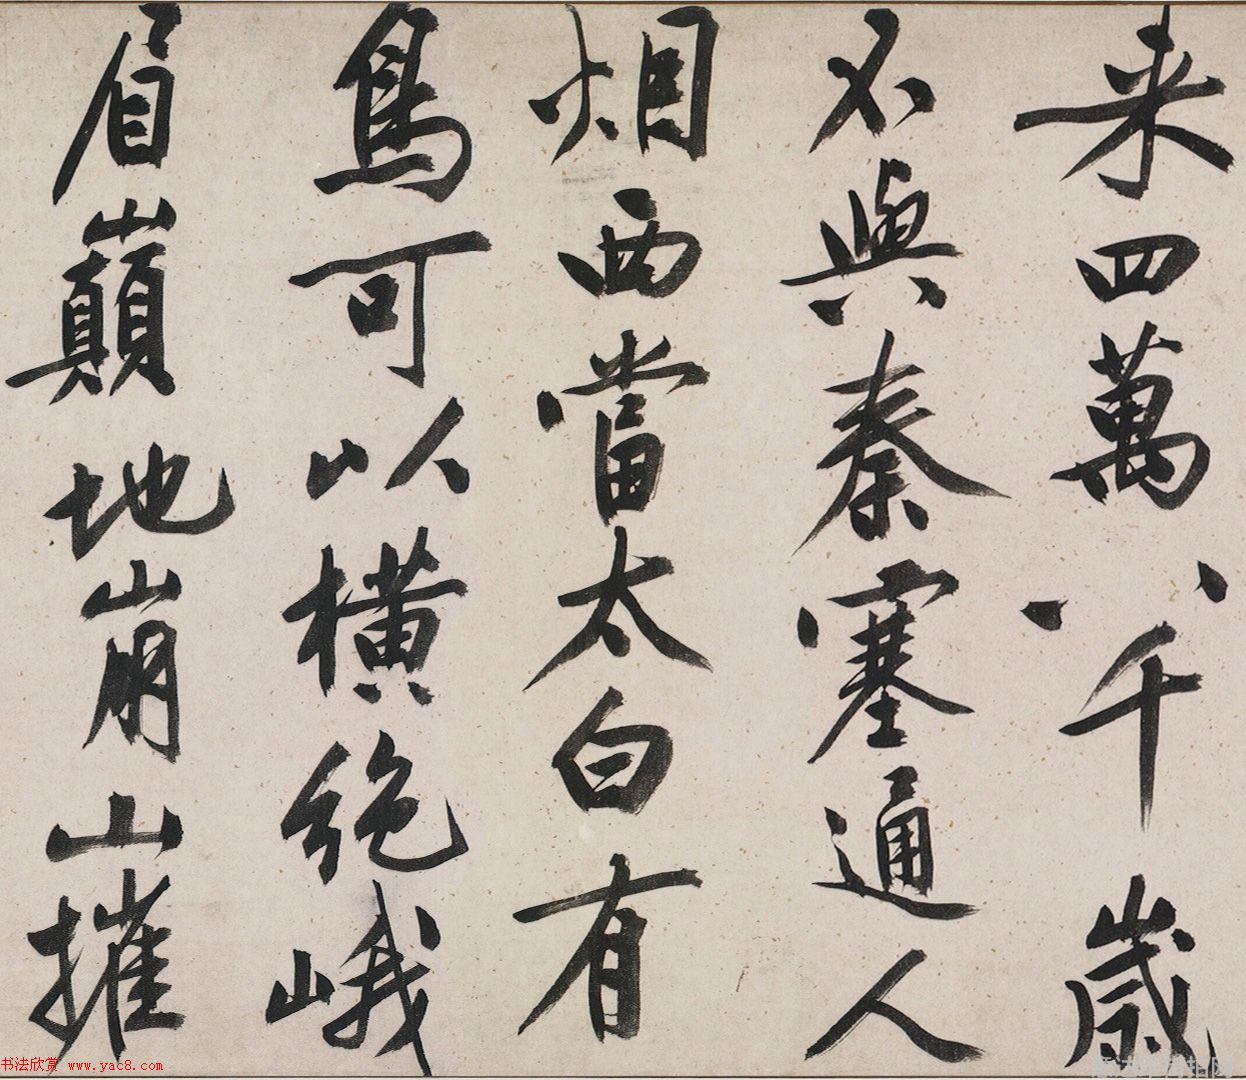 来四萬八千歲
不與秦塞通人
烟西當太白有
鳥可以横絶峨
眉巔地崩山摧
书法欣赏 www.yac8.com